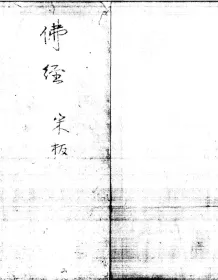 佛經 宋板